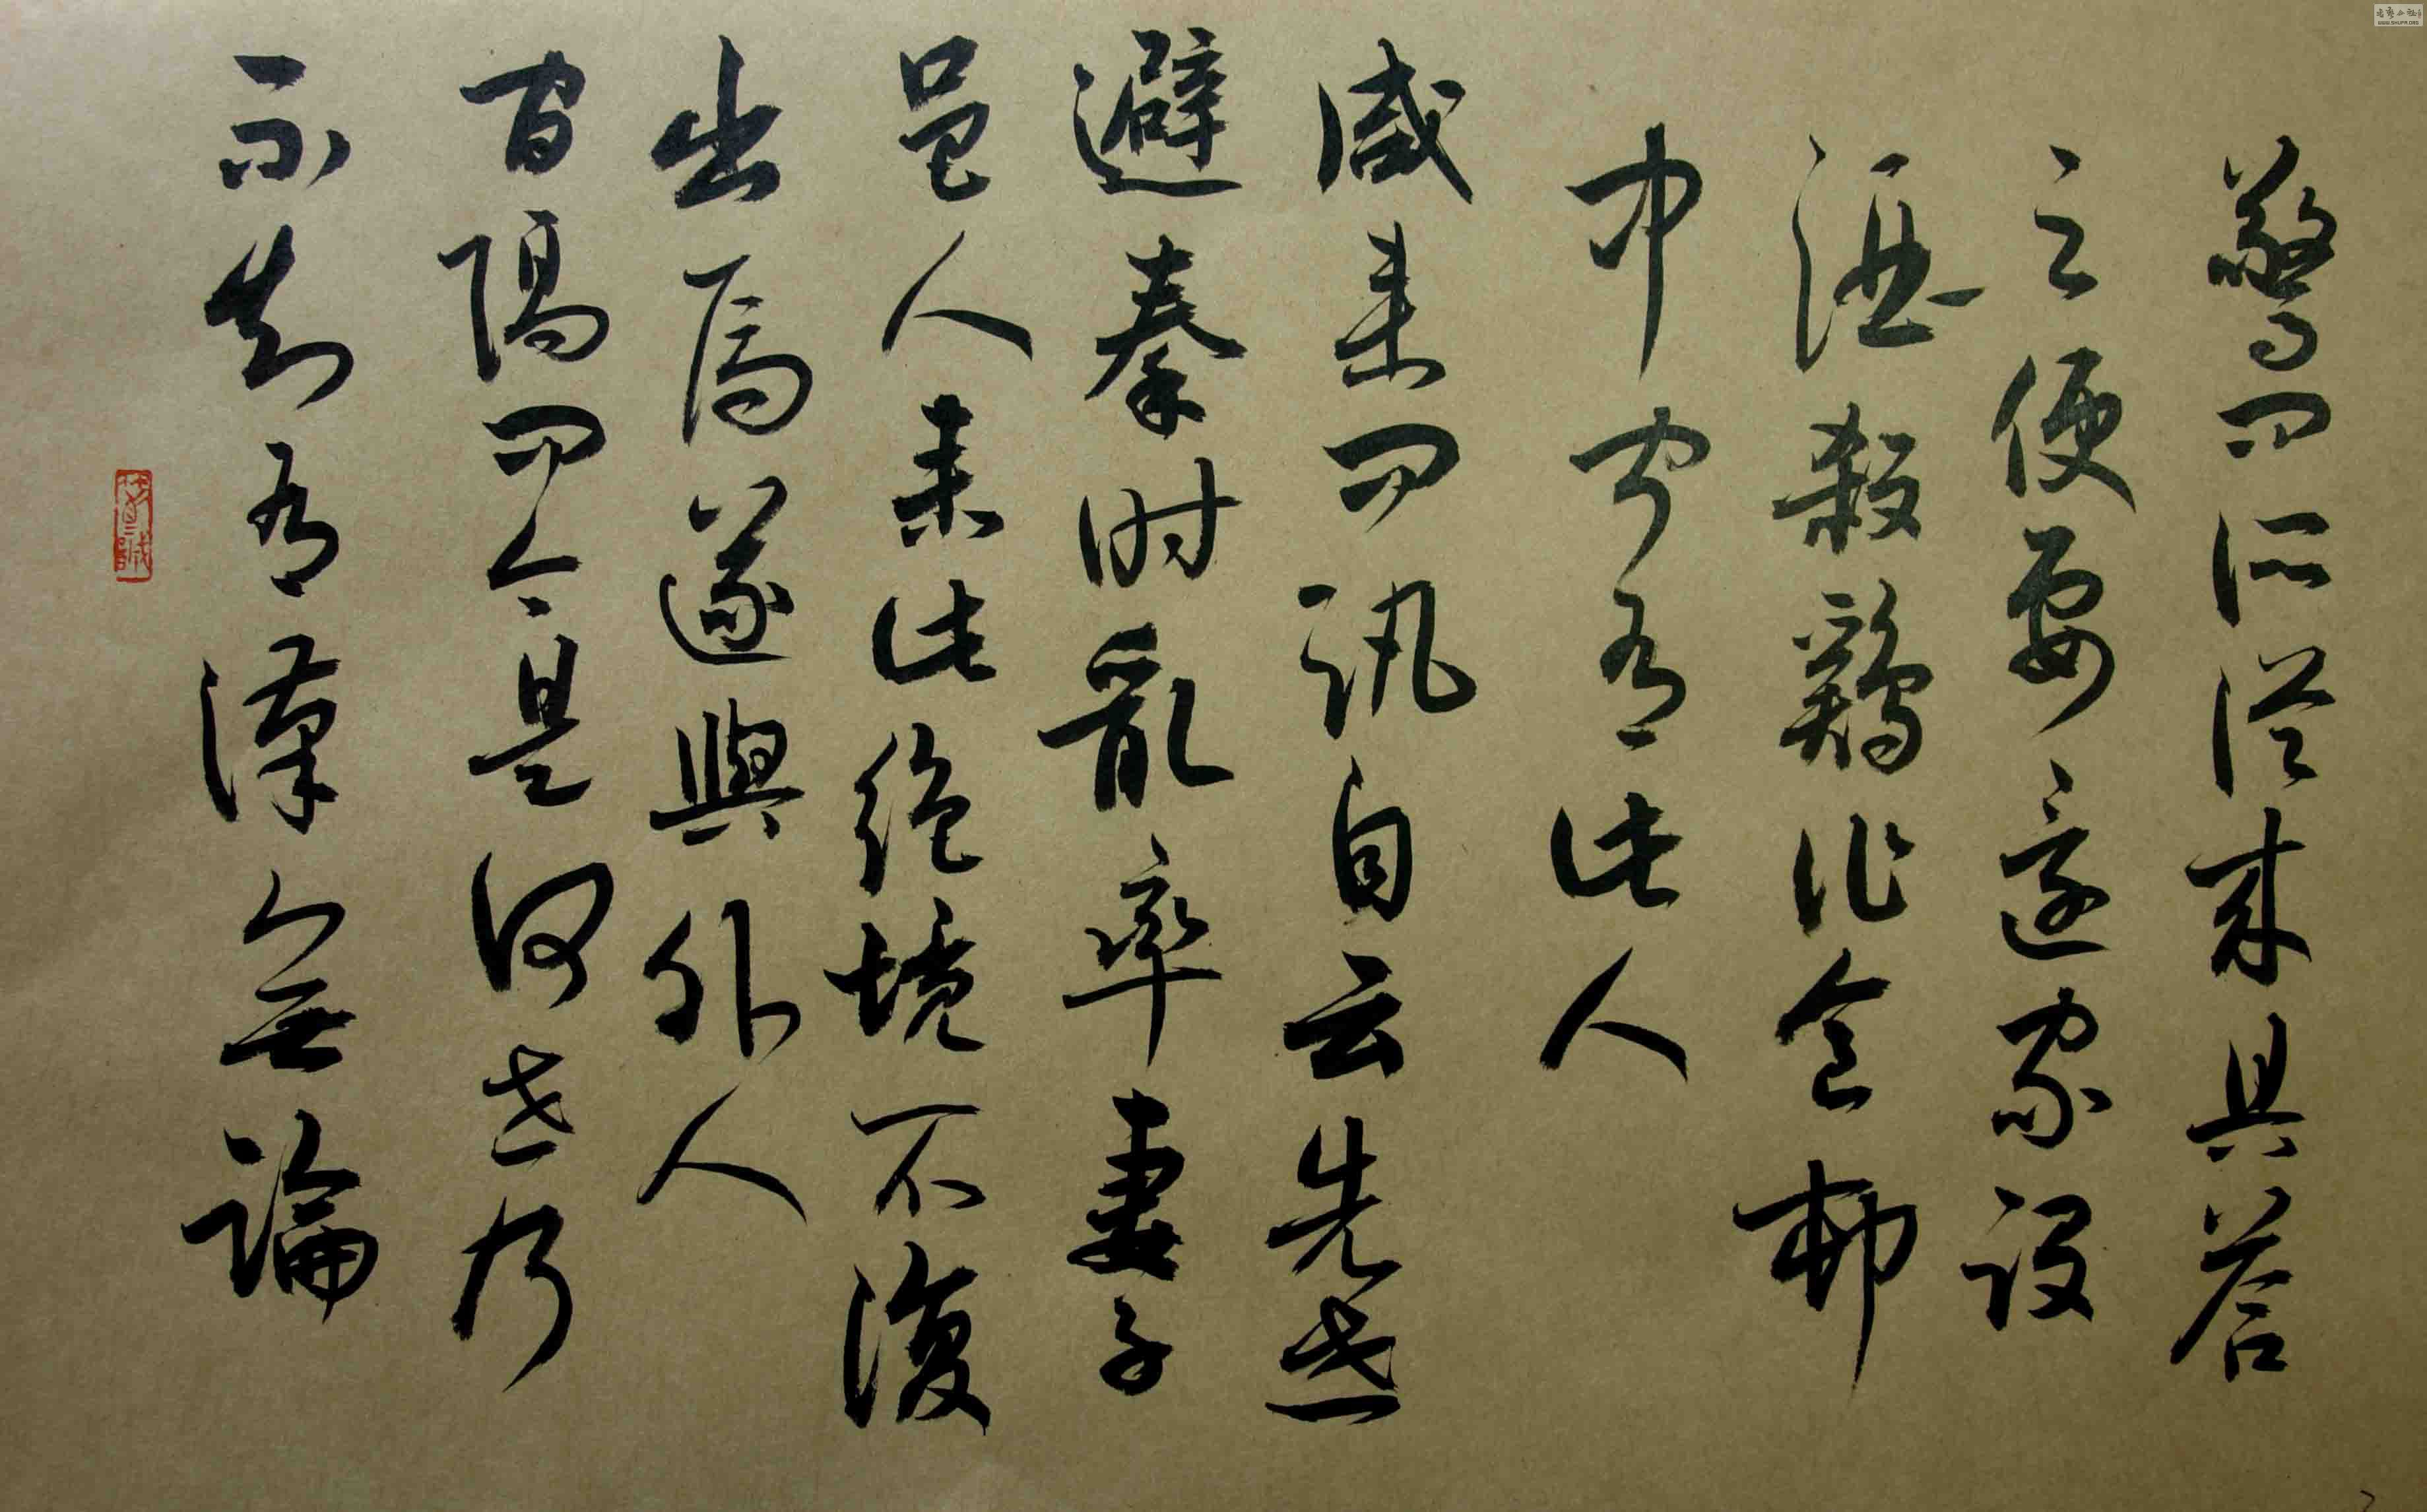 驚問所從來具答
之便要還家設
酒殺鷄作食邨
中聞有此人
咸來問訊自云先世
避秦時亂率妻子
邑人來此絶境不復
出焉遂與外人
間隔問今是何世乃
不知有漢無論